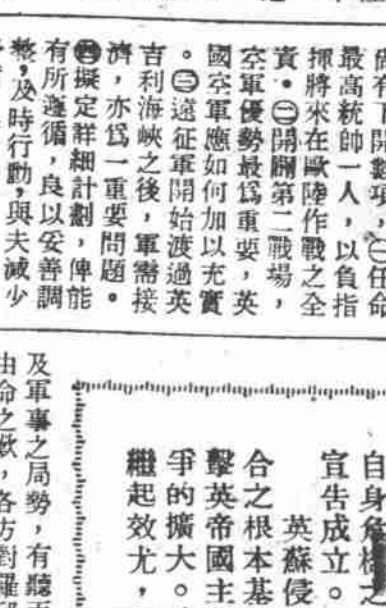 尙有下開數項，㊀任命
最高統帥一人，以負指
揮將來在歐陸作戰之全
責。㊁開闢第二戰場，
空軍優勢最爲重要，英
國空軍應如何加以充實
。㊂遠征軍開始渡過英
吉利海峽之後，軍需接
濟，亦爲一重要問題。
㊃擬定詳細計劃，俾能
有所遵循，良以妥善調
整，及時行動，與夫減少
自身危機之
宣告成立。
英蘇侵
合之根本基
擊英帝國主
爭的擴大。
繼起效尤，
及軍事之局勢，有聽
由命之歎，各方對羅